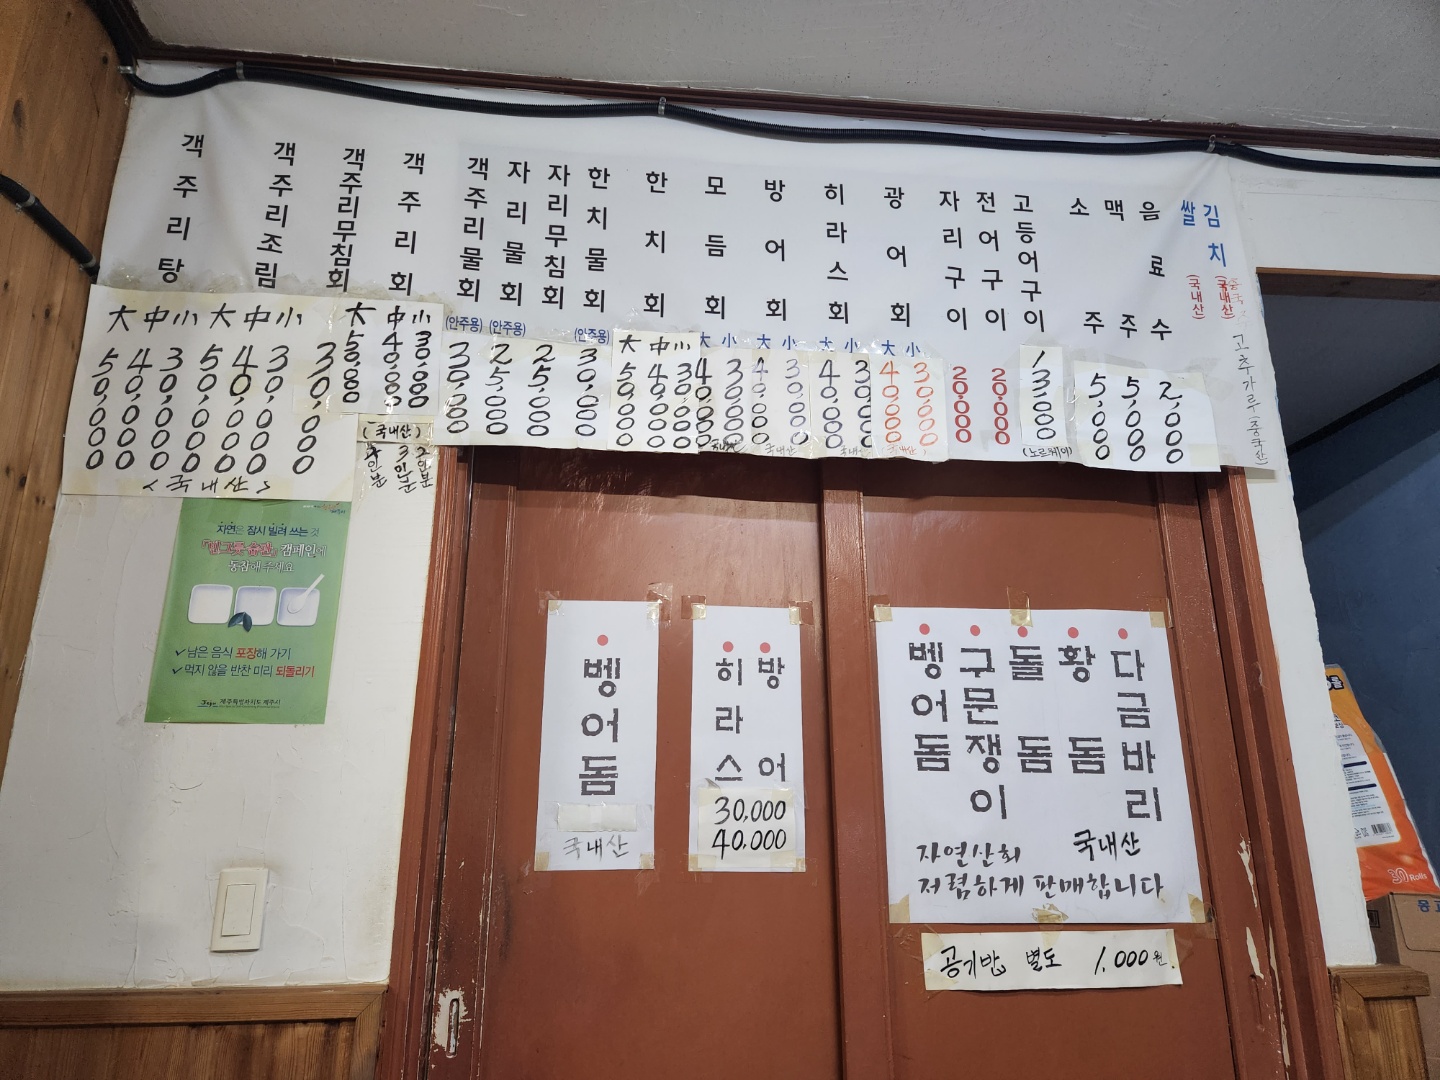 객주리탕
大 中 小
50,000 40,000 30,000
객주리조림
大 中 小
50,000 40,000 30,000
<국내산>
객주리무침회
30,000
객주리회
大 中 小
50,000 40,000 30,000
(국내산)
3인분 2인분
객주리물회
(안주용)
30,000
자리물회
(안주용)
25,000
자리무침회
25,000
한치물회
(안주용)
30,000
한치회
大 中 小
50,000 40,000 30,000
모듬회
大 小
40,000 30,000
방어회
大 小
40,000 30,000
국내산
히라스회
大 小
40,000 30,000
광어회
大 小
40,000 30,000
국내산
자리구이
20,000
전어구이
20,000
고등어구이
13,000
(노르웨이)
소주
5,000
맥주
5,000
음료수
2,000
쌀
(국내산)
김치
(국내산)
고추가루(중국산)
자연은 잠시 빌려 쓰는 것
캠페인에
동참해 주세요
남은 음식 포장해 가기
먹지 않을 반찬 미리 되돌리기
제주특별자치도 제주시
벵어돔
국내산
히라스
방어
30,000
40,000
벵어돔
구문쟁이
돌돔
황돔
다금바리
자연산회 국내산
저렴하게 판매합니다
공기밥 별도 1,000원
30 Rolls